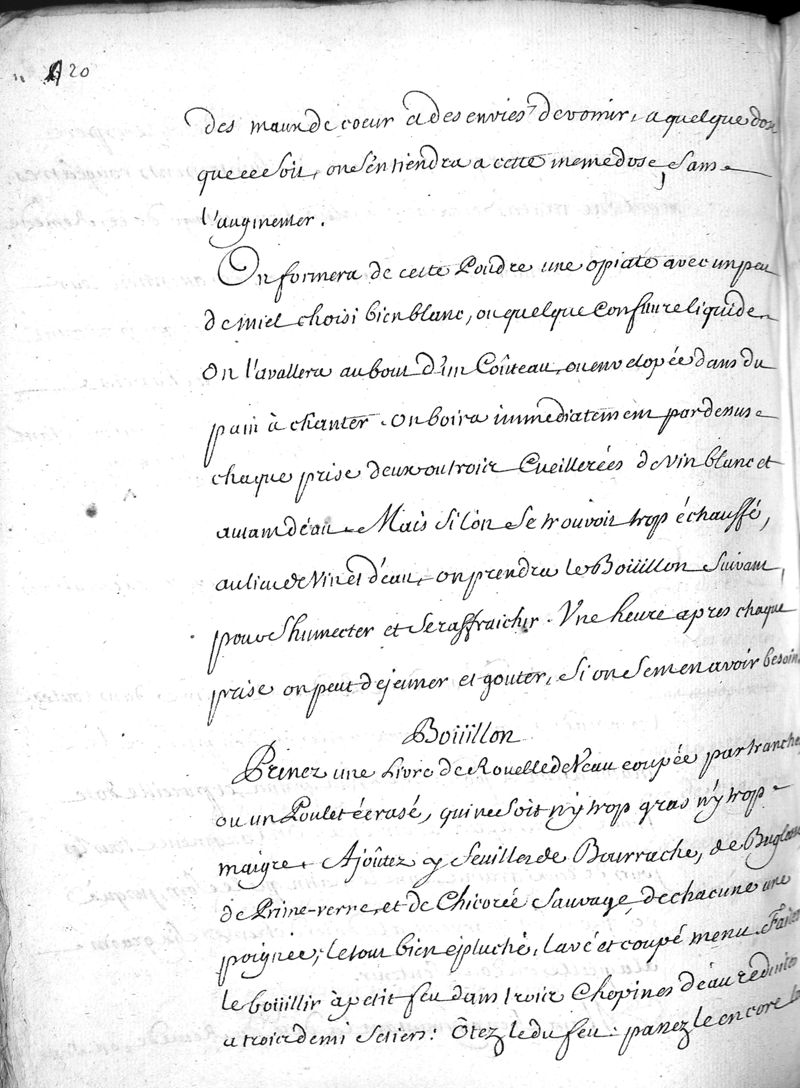 120
des maux de coeur et des envies de vomir, a quelque dose
que ce soit, on s'en tiendra a cette meme dose, sans
l'augmenter.
On formera de cette Poudre une opiate avec un peu
de miel choisi bien blanc, ou quelque Confiture liquide.
On l'avallera au bout d'un Coûteau, ou envelopée dans du
pain à chanter. On boira immediatement par dessus
chaque prise deux ou trois Cueillerées de Vin blanc et
autant d'eau. Mais si l'on se trouvoit trop échauffé,
au lieu de Vin et d'eau, on prendra le Boüillon suivant,
pour s'humecter et se raffraichir. Une heure apres chaque
prise on peut dejeuner et goûter, si on s'en en avoir besoin.
Boüillon
Prenez une Livre de Roüelle de Veau coupée par tranches,
ou un Poulet écrasé, qui ne soit n'y trop gras n'y trop
maigre. Ajoûtez y feuilles de Bourrache, de Buglose
de Prime-verre, et de Chicorée Sauvage, de chacune une
poignée; le tout bien épluché, lavé et coupé menu. Faites
le boüillir à petit feu dans trois Chopines d'eau reduites
a trois demi Setiers: Ôtez le du feu: passez le encore